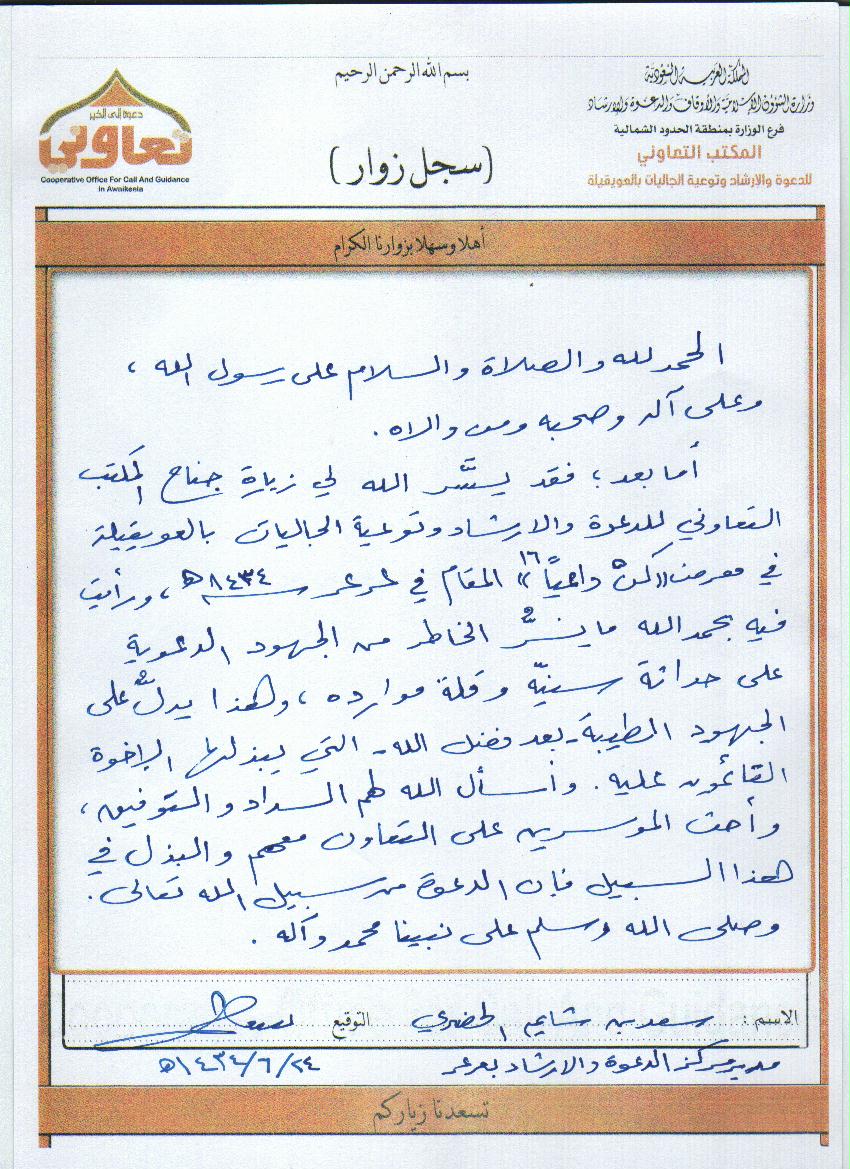 بسم الله الرحمن الرحيم
المملكة العربية السعودية
وزارة الشؤون الإسلامية والأوقاف والدعوة والإرشاد
فرع الوزارة بمنطقة الحدود الشمالية
المكتب التعاوني
للدعوة والإرشاد وتوعية الجاليات بالعويقيلة
(سجل زوار)
دعوة إلى الخير
تعاوني
Cooperative Office For Call And Guidance
In Awaikeela
أهلا وسهلا بزوارنا الكرام
الحمد لله والصلاة والسلام على رسول الله ،
وعلى آله وصحبه ومن والاه .
أما بعد ؛ فقد يسَّر الله لي زيارة جناح المكتب
التعاوني للدعوة والارشاد وتوعية الجاليات بالعويقيلة
في معرض «كن داعياً ١٦» المقام في عرعر ١٤٣٤هـ ، ورأيت
فيه بحمد الله ما يسُرُّ الخاطر من الجهود الدعوية
على حداثة سنيّه وقلة موارده ، وهذا يدلُّ على
الجهود الطيبة - بعد فضل الله - التي يبذلها الإخوة
القائمون عليه . وأسأل الله لهم السداد والتوفيق ،
وأحث الموسرين على التعاون معهم والبذل في
هذا السبيل فإن الدعوة من سبيل الله تعالى .
وصلى الله وسلم على نبينا محمد وآله .
الاسم : سعد بن شايم الحضيري التوقيع سعد
مدير مركز الدعوة والارشاد بعرعر ١٤٣٤/٦/٢٤هـ
تسعدنا زيارتكم